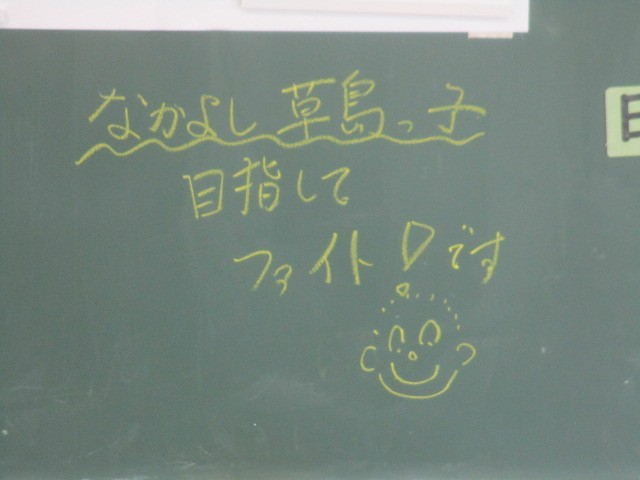 なかよし草島っ子
目指して
ファイト!です
日